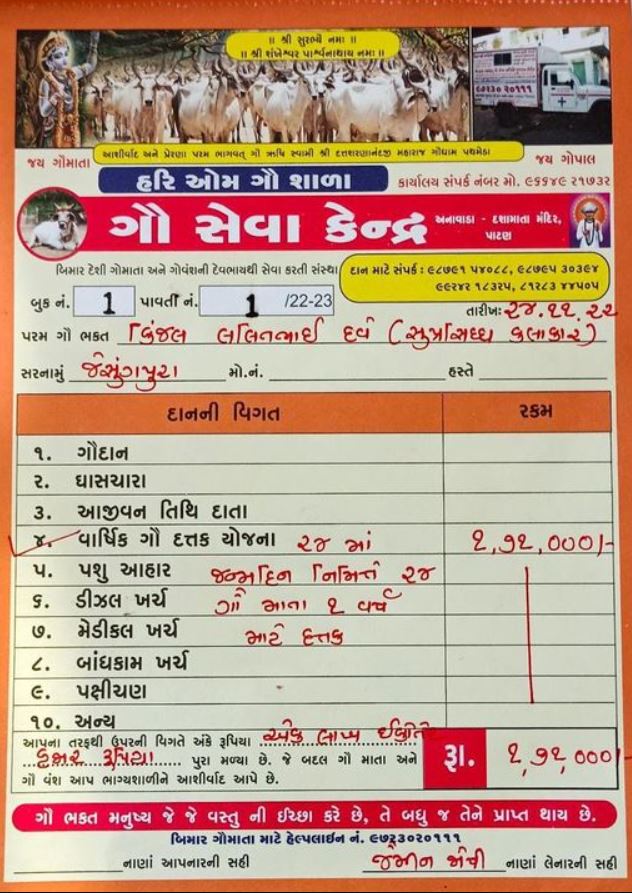 ॥ શ્રી સુરભ્યૈ નમઃ ॥
॥ શ્રી શંખેશ્વર પાર્શ્વનાથાય નમઃ ॥
૯૭૨૩૦ ૨૦૧૧૧
આશીર્વાદ અને પ્રેરણા પરમ ભાગવત્ ગૌ ઋષિ સ્વામી શ્રી દત્તશરણાનંદજી મહારાજ ગૌધામ પથમેડા
જય ગૌમાતા
જય ગોપાલ
હરિ ઓમ ગૌ શાળા
કાર્યાલય સંપર્ક નંબર મો. ૯૬૬૪૯ ૨૧૭૩૨
ગૌ સેવા કેન્દ્ર
અનાવાડા - દશામાતા મંદિર,
પાટણ
બિમાર દેશી ગૌમાતા અને ગૌવંશની દેવભાવથી સેવા કરતી સંસ્થા
દાન માટે સંપર્ક : ૯૮૭૯૧ ૫૪૦૮૮, ૯૮૭૯૫ ૩૦૩૯૪
૯૯૨૪૨ ૧૮૩૨૫, ૮૧૨૮૩ ૪૪૫૦૫
બુક નં. 1 પાવતી નં. 1 /22-23
તારીખઃ ૨૪.૧૧.૨૨
પરમ ગૌ ભક્ત કિંજલ લલિતભાઈ દવે (સુપ્રસિધ્ધ કલાકાર)
સરનામું જેસુંગપુરા મો.નં. હસ્તે
દાનની વિગત રકમ
૧. ગૌદાન
૨. ઘાસચારા
૩. આજીવન તિથિ દાતા
૪. વાર્ષિક ગૌ દત્તક યોજના ૨૪ માં ૧,૭૧,૦૦૦/-
૫. પશુ આહાર જન્મદિન નિમિત્તે ૨૪
૬. ડીઝલ ખર્ચ ગૌ માતા ૧ વર્ષ
૭. મેડીકલ ખર્ચ માટે દત્તક
૮. બાંધકામ ખર્ચ
૯. પક્ષીચણ
૧૦. અન્ય
આપના તરફથી ઉપરની વિગતે અંકે રૂપિયા એક લાખ ઈકોતેર
હજાર રૂપિયા પુરા મળ્યા છે. જે બદલ ગૌ માતા અને
ગૌ વંશ આપ ભાગ્યશાળીને આશીર્વાદ આપે છે.
રૂા. ૧,૭૧,૦૦૦/-
ગૌ ભક્ત મનુષ્ય જે જે વસ્તુ ની ઈચ્છા કરે છે, તે બધુ જ તેને પ્રાપ્ત થાય છે.
બિમાર ગૌમાતા માટે હેલ્પલાઈન નં. ૯૭૨૩૦૨૦૧૧૧
નાણાં આપનારની સહી
નાણાં લેનારની સહી